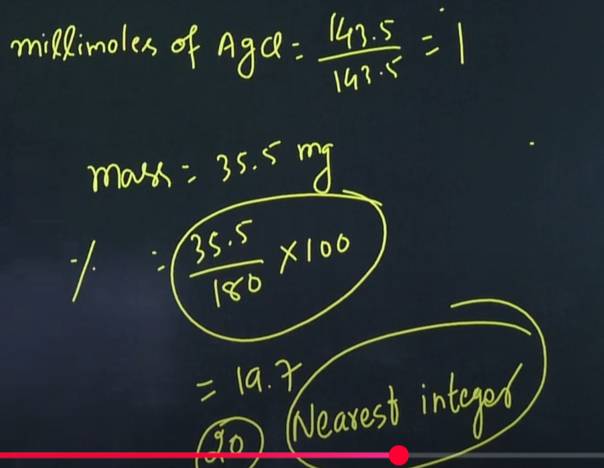 millimoles of AgCl = 143.5/143.5 = 1
mass = 35.5 mg
% = 35.5/180 × 100
= 19.7
20 Nearest integer